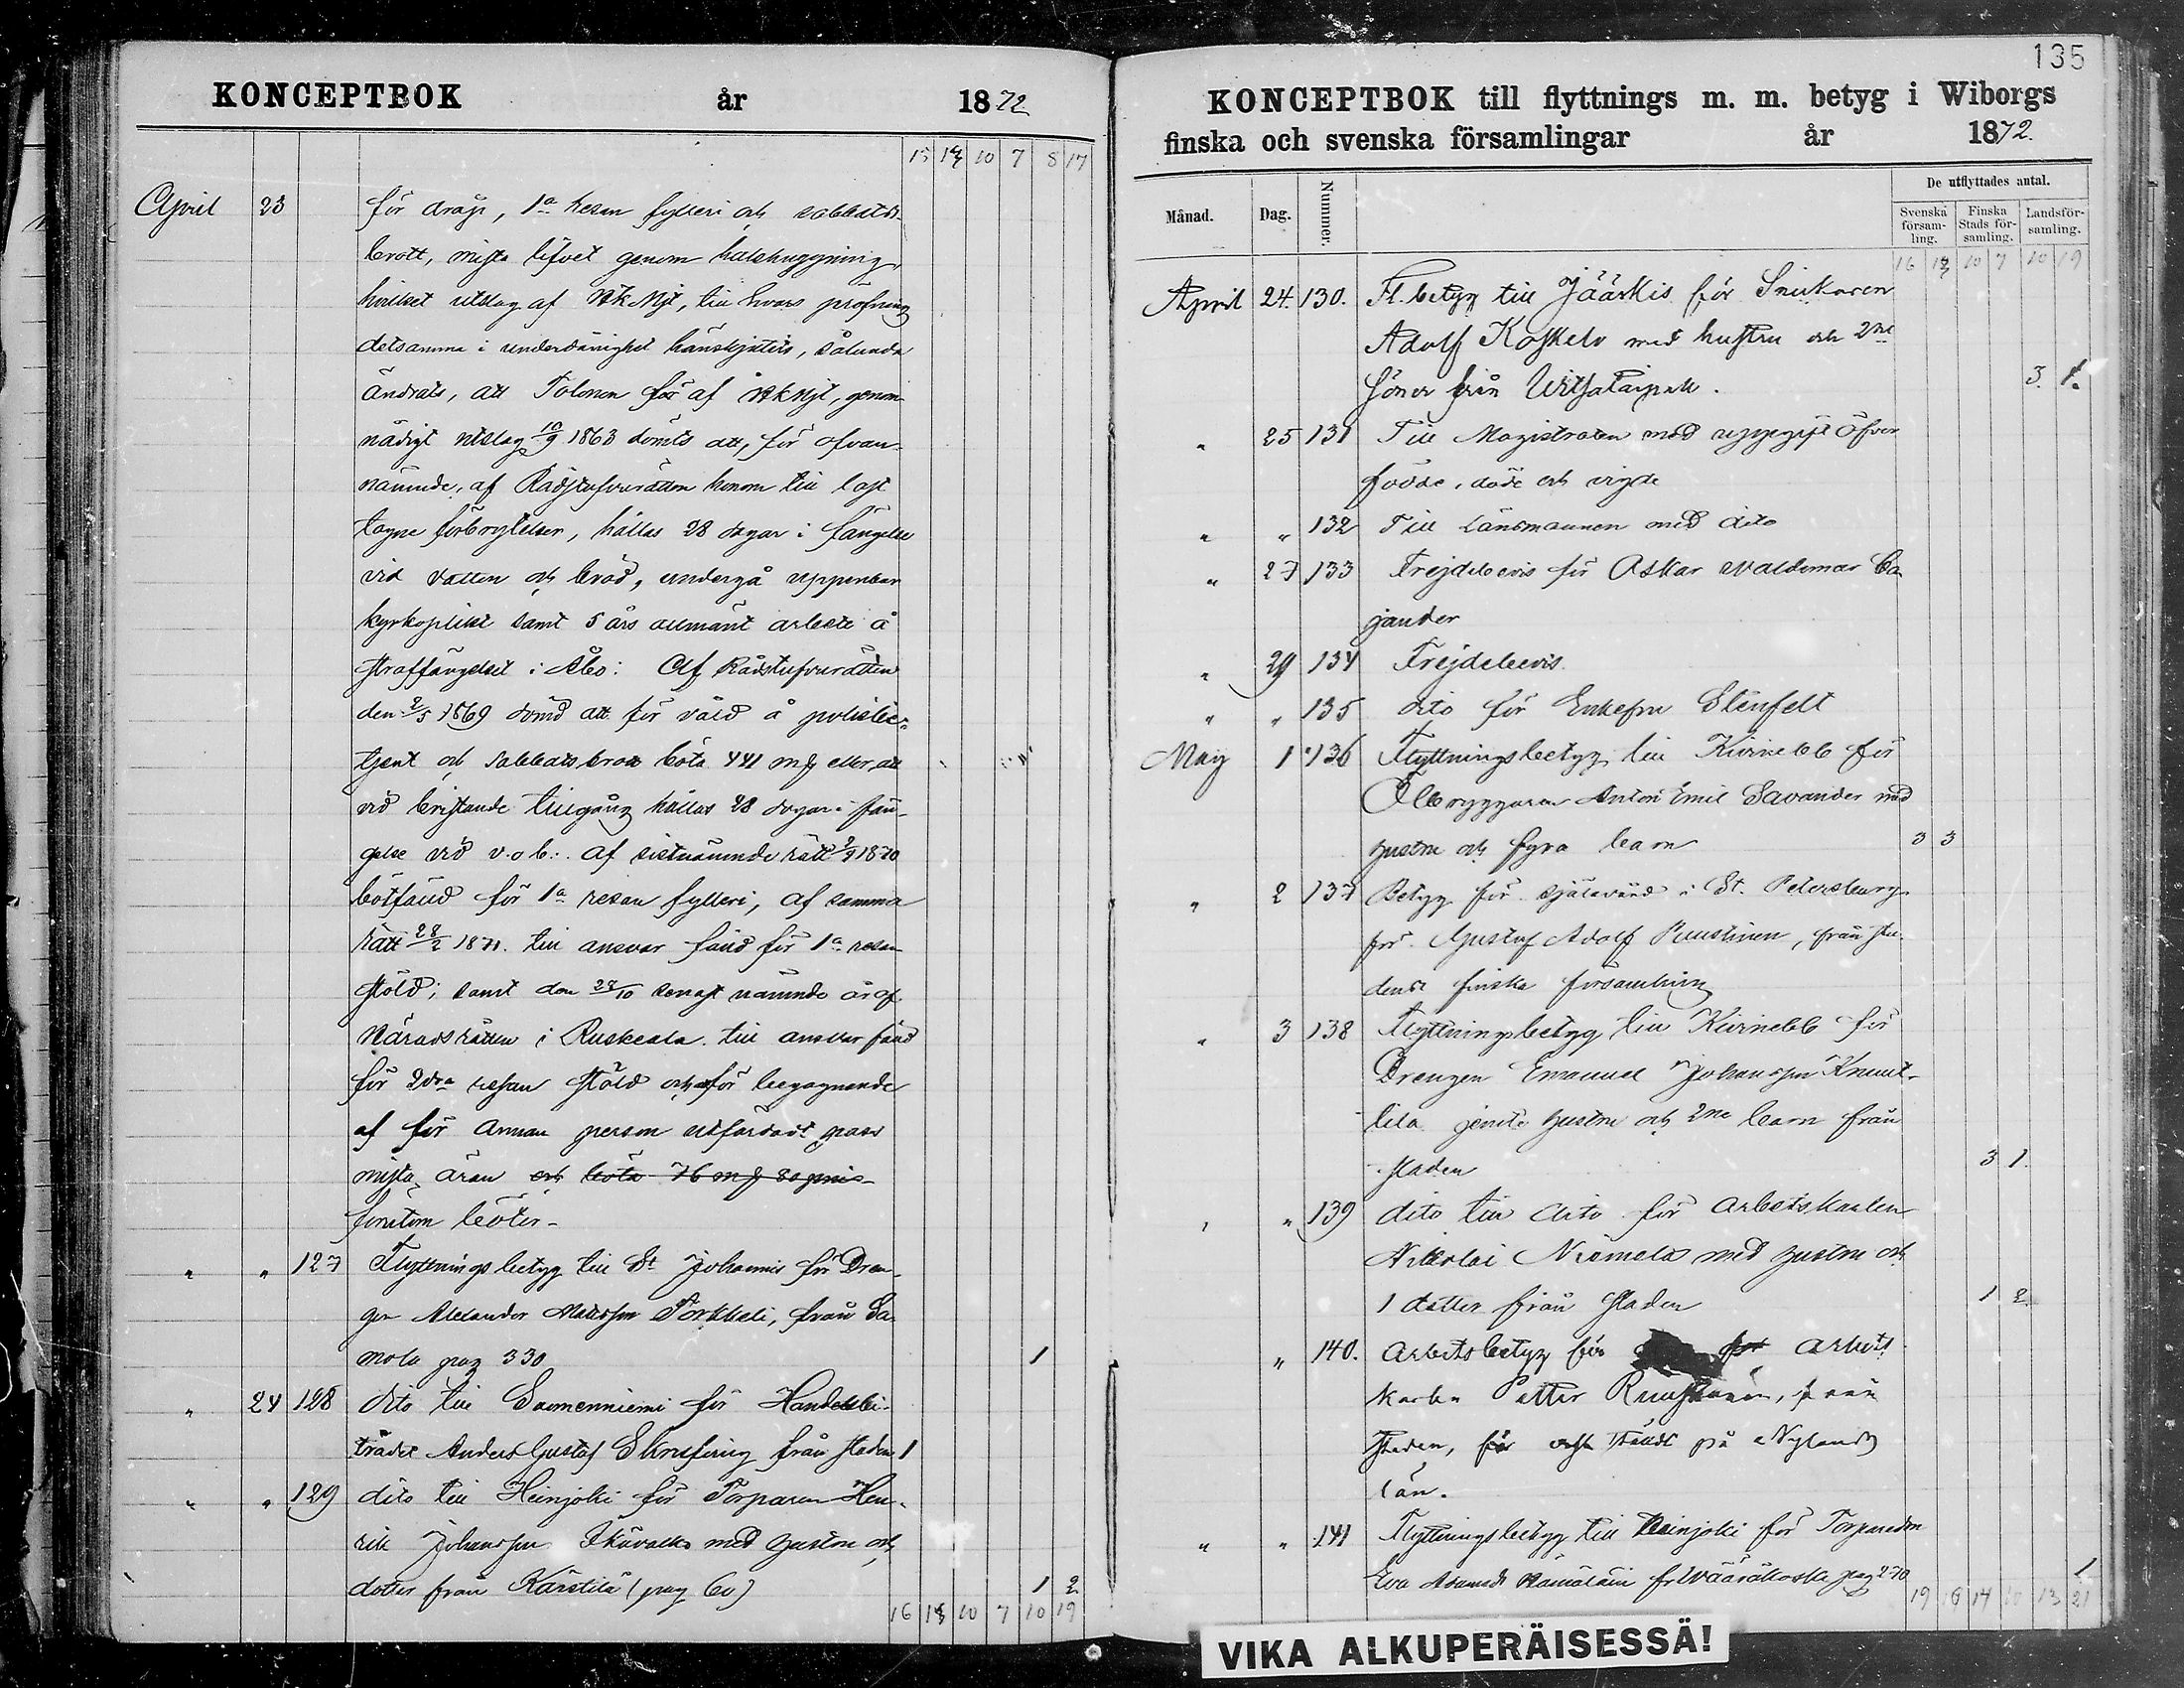 KONCEPTBOK år 1872
15 14 10 7 8 17
April 23 för dråp, 1a resan fylleri och sabbats-
brott, mista lifvet genom halshuggning,
hvilket utslag af HKMjt, till hvars pröfning
detsamma i underdånighet hänskjutits, sålunda
ändrats, att Tolonen för af HKMjt, genom
nådigt utslag 10/9 1863 dömts att, för ofvan-
nämnde, af Rådstufvurätten honom till last
tagne förbrytelser, hållas 28 dagar i fängelse
vid vatten och bröd, undergå uppenbar
kyrkoplikt samt 5 års allmänt arbete å
straffängelset i Åbo: Af Rådstufvurätten
den 2/5 1869 dömd att för våld å polisbe-
tjent och sabbatsbrott böta 441 mk eller att
vid bristande tillgång hållas 28 dagar i fän-
gelse vid v. o b.: af sistnämnde rätt 2/9 1870
bötfäld för 1a resan fylleri, af samma
rätt 28/2 1871 till ansvar fäld för 1a resan
stöld; samt den 28/10 senast nämnde år af
Häradsrätten i Ruskeala till ansvar fäld
för 2dra resan stöld och för begagnande
af för annan person utfärdadt pass
mista äran och böta 76 mk 80 pni
förutom böter-
" " 127 Flyttningsbetyg till St Johannis för Dren-
gen Alexander Matsson Torkkeli, från Sa-
mola pag 330 1
" 24 128 dito till Suomenniemi för Handelsbi-
trädet Anders Gustaf Skrufving från staden 1
" " 129 dito till Heinjoki för Torparen Hen-
rik Johansson Ikävalko med hustru och
dotter från Kärstilä (pag 60) 1 2
16 15 10 7 10 19
135
KONCEPTBOK till flyttnings m. m. betyg i Wiborgs
finska och svenska församlingar år 1872.
Månad. Dag. Nummer. De utflyttades antal.
Svenska församling. Finska Stads församling. Landsförsamling.
16 15 10 7 10 19
April 24. 130. Fl. betyg till Jääskis för Snickaren
Adolf Koskelo med hustru och 2ne
söner från Uitsataipale. 3. 1.
" 25 131 Till Magistraten med uppgift öfver
födde, döde och vigde
" " 132 Till Länsmannen med dito
" 27 133 Frejdebevis för Oskar Waldemar Ca-
jander
" 29 134 Frejdebevis
" " 135 dito för Enkefru Stenfelt
May 1 136 Flyttningsbetyg till Kivinebb för
Ölbryggaren Anton Emil Savander med
hustru och fyra barn 3 3
" 2 137 Betyg för själavård i St. Petersburg
för Gustaf Adolf Puustinen, från sta-
dens finska församling
" 3 138 Flyttningsbetyg till Kivinebb för
Drengen Emanuel Johansson Knuut-
tila jemte hustru och 2ne barn från
staden 3 1.
" " 139 dito till dito för arbetskarlen
Nikolai Niemelä med hustru och
1 dotter från staden 1 2.
" 140. Arbetsbetyg för arbets
karlen Petter Ruuskanen, från
staden, för och på Nylands
län.
" " 141 Flyttningsbetyg till Heinjoki för Torparedon
Eva Adamsdr Hämäläin fr Wääräkoski pag 270 1
19 16 14 10 13 21
VIKA ALKUPERÄISESSÄ!